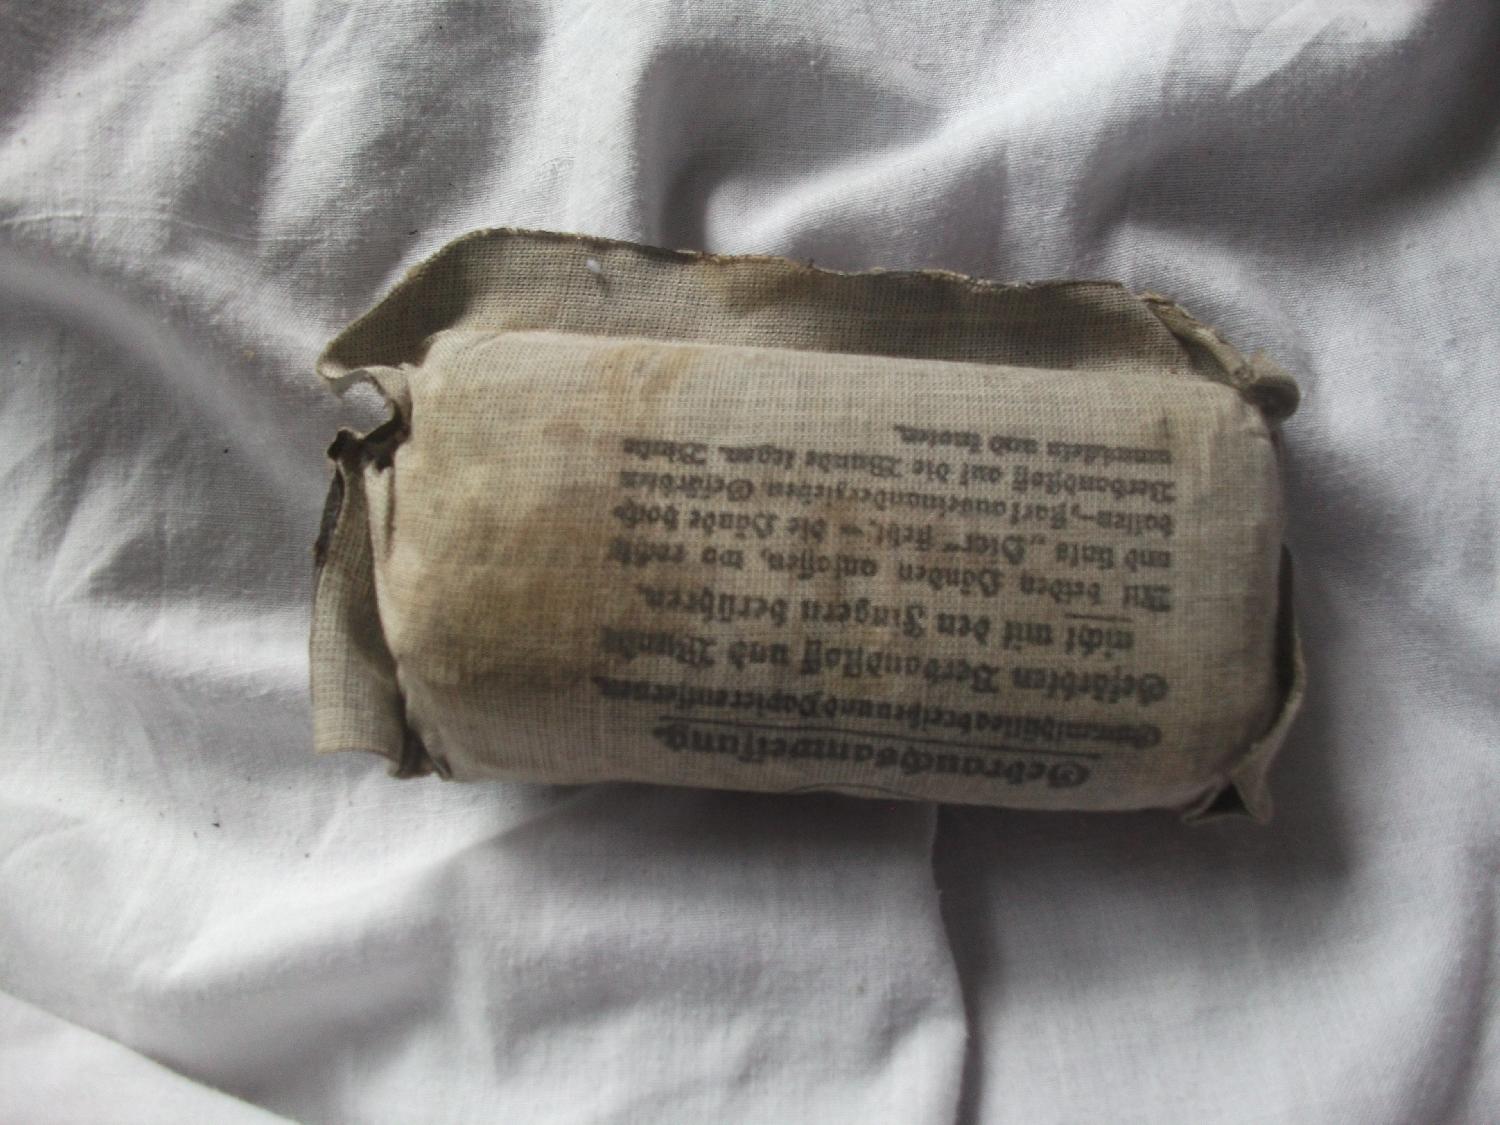 Gebrauchsanweisung.
Gummihülle abreißen und Papier entfernen.
Gefärbten Verbandstoff und Wunde
nicht mit den Fingern berühren.
Mit beiden Händen anfassen, wo rechts
und links „Hier“ steht, – die Hände hoch-
halten –, stark auseinanderziehen. Gefärbten
Verbandstoff auf die Wunde legen. Binde
umwickeln und knoten.